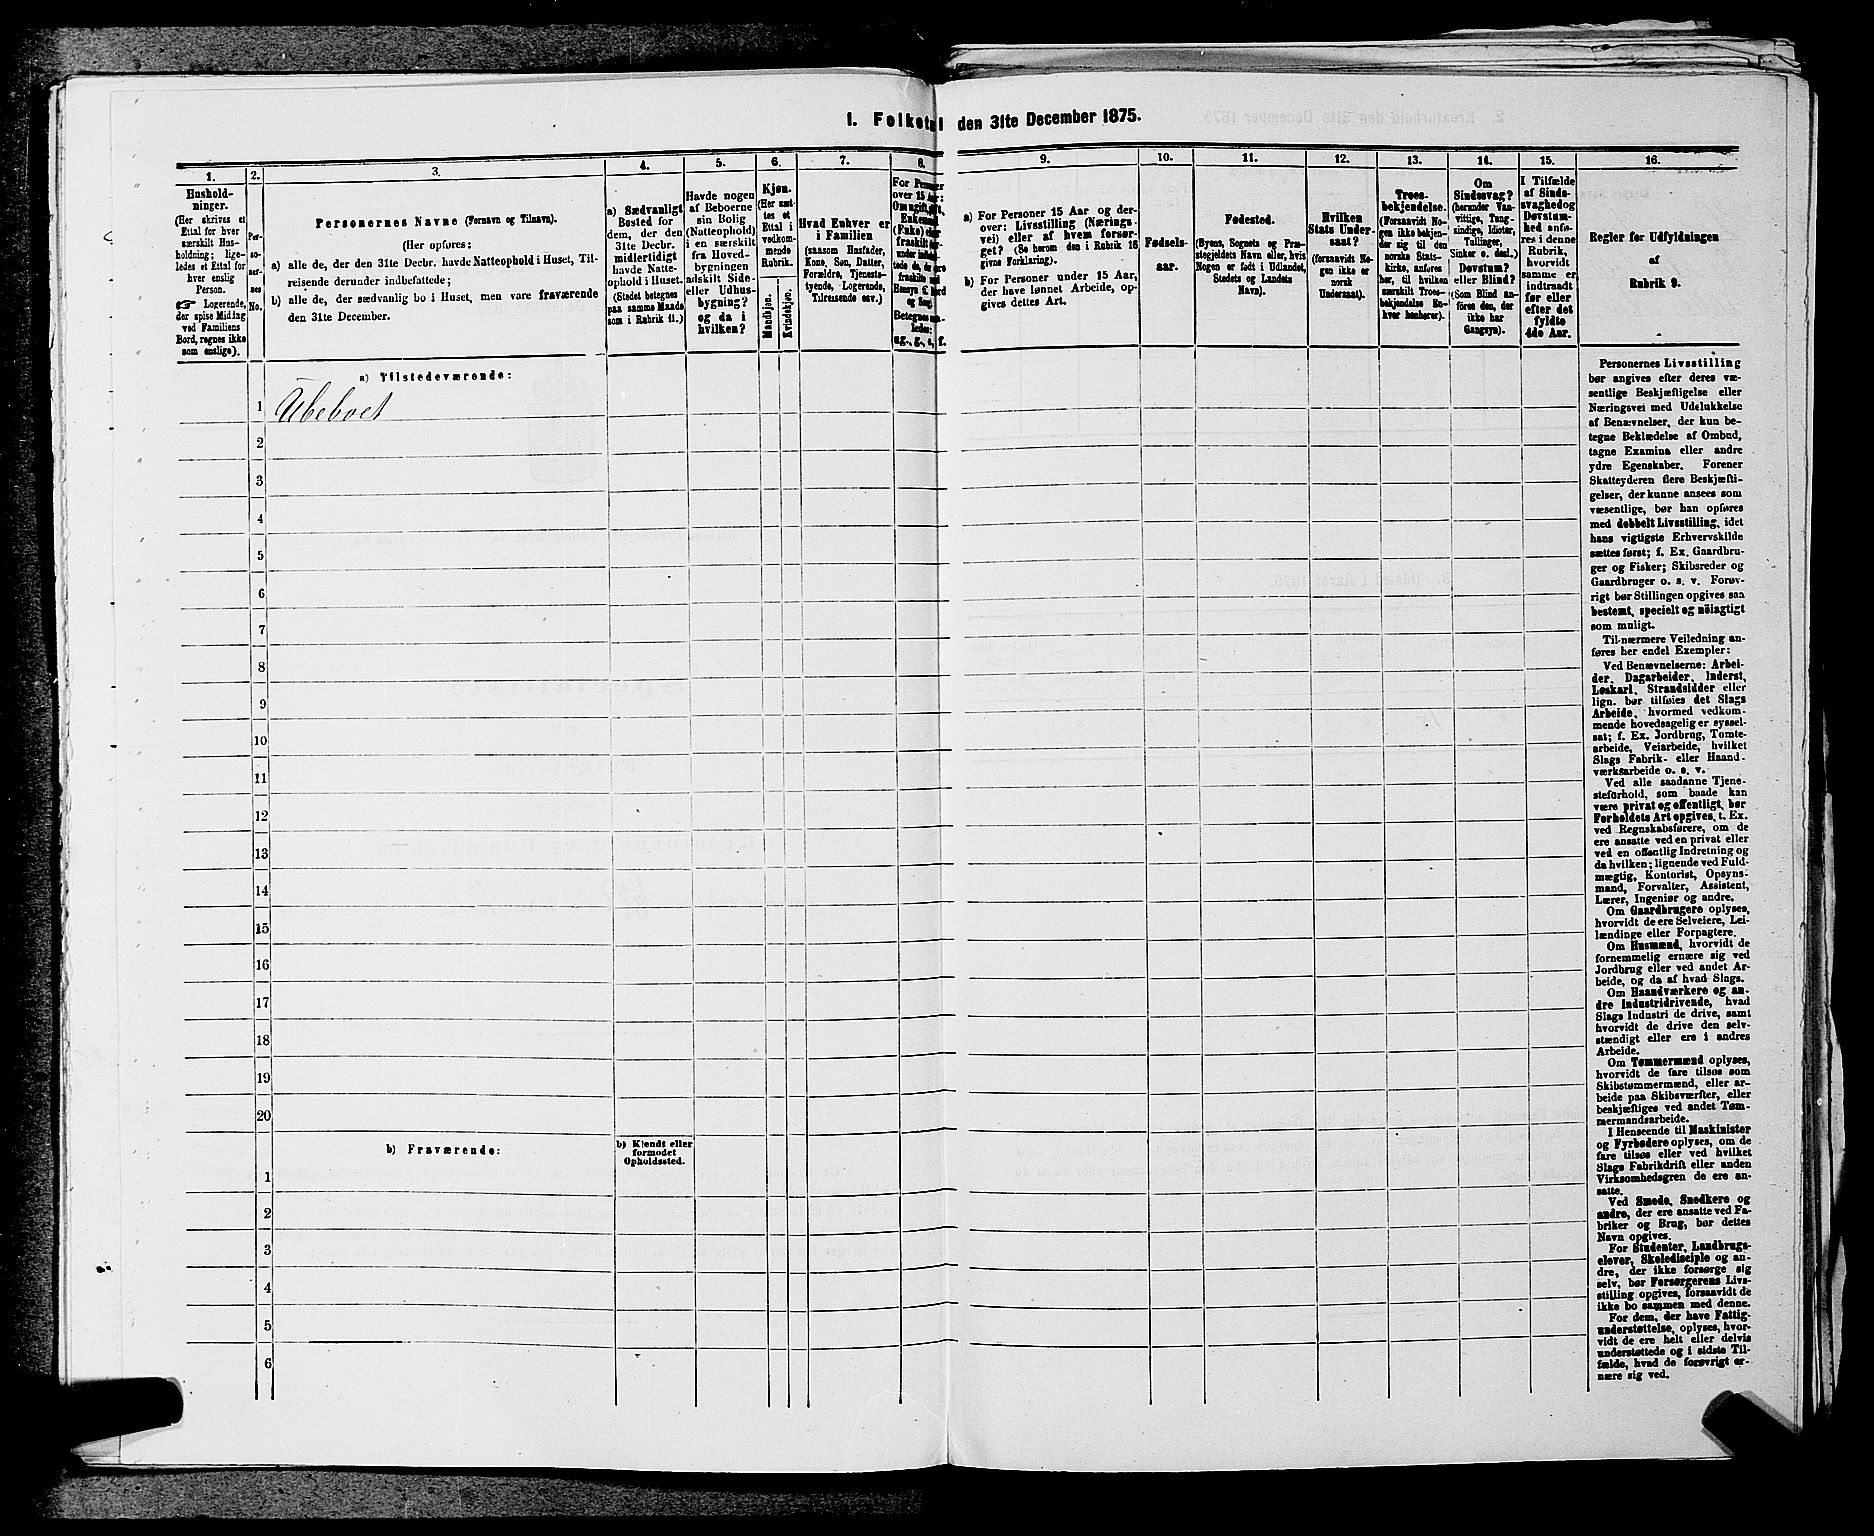 1. Folketal den 31te December 1875.
1.
Hushold-
ninger.
(Her skrives et
Ettal for hver
særskilt Hus-
holdning; lige-
ledes et Ettal for
hver enslig
Person.
☞ Logerende,
der spise Middag
ved Familiens
Bord, regnes ikke
som enslige).
2.
Per-
so-
ner-
nes
No.
3.
Personernes Navne (Fornavn og Tilnavn).
(Her opføres:
a) alle de, der den 31te Decbr. havde Natteophold i Huset, Til-
reisende derunder indbefattede;
b) alle de, der sædvanlig bo i Huset, men vare fraværende
den 31te December.
4.
a) Sædvanligt
Bosted for
dem, der den
31te Decbr.
midlertidigt
havde Natte-
ophold i Huset.
(Stedet betegnes
paa samme Maade
som i Rubrik 11.)
5.
Havde nogen
af Beboerne
sin Bolig
(Natteophold)
i en særskilt
fra Hoved-
bygningen
adskilt Side-
eller Udhus-
bygning?
og da i
hvilken?
6.
Kjøn.
(Her sæt-
tes et
Ettal i
vedkom-
mende
Rubrik.
Mandkjøn.
Kvindekjøn.
7.
Hvad Enhver er
i Familien
(saasom Husfader,
Kone, Søn, Datter,
Forældre, Tjeneste-
tyende, Logerende,
Tilreisende osv.)
8.
For Personer
over 15 Aar:
Om ugift, gift,
Enkemand
(Enke) eller
fraskilt
Betegnes saa-
ledes:
ug., g., e., f.
9.
a) For Personer 15 Aar og der-
over: Livsstilling (Nærings-
vei) eller af hvem forsør-
get? (Se herom den i Rubrik 16
givne Forklaring).
b) For Personer under 15 Aar,
der have lønnet Arbeide, op-
gives dettes Art.
10.
Fødsels-
aar.
11.
Fødested.
(Byens, Sognets og Præ-
stegjeldets Navn eller, hvis
Nogen er født i Udlandet,
Stedets og Landets
Navn).
12.
Hvilken
Stats Under-
saat?
(forsaavidt No-
gen ikke er
norsk
Undersaat).
13.
Troes-
bekjendelse.
(Forsaavidt No-
gen ikke bekjen-
der sig til den
norske Stats-
kirke, anføres
her, til hvilken
særskilt Troes-
bekjendelse En-
hver henhører).
14.
Om
Sindssvag?
(herunder Van-
vittige, Tung-
sindige, Idioter,
Tullinger,
Sinker o. desl.)
Døvstum?
eller Blind?
(Som Blind an-
føres den, der
ikke har
Gangsyn).
15.
I Tilfælde
af Sinds-
svaghed og
Døvstum-
hed anfø-
res i denne
Rubrik,
hvorvidt
samme er
indtraadt
før eller
efter det
fyldte
4de Aar.
16.
Regler for Udfyldningen
af
Rubrik 9.
a) Tilstedeværende:
1 Ubeboet
2
3
4
5
6
7
8
9
10
11
12
13
14
15
16
17
18
19
20
b) Fraværende:
b) Kjendt eller
formodet
Opholdssted.
1
2
3
4
5
6
Personernes Livsstilling
bør angives efter deres væ-
sentlige Beskjæftigelse eller
Næringsvei med Udelukkelse
af Benævnelser, der kun be-
tegne Beklædelse af Ombud,
tagne Examina eller andre
ydre Egenskaber. Forener
Skatteyderen flere Beskjæfti-
gelser, der kunne ansees som
væsentlige, bør han opføres
med dobbelt Livsstilling, idet
hans vigtigste Erhvervskilde
sættes først; f. Ex. Gaardbru-
ger og Fisker; Skibsreder og
Gaardbruger o. s. v. Forøv-
rigt bør Stillingen opgives saa
bestemt, specielt og nöiagtigt
som muligt.
Til nærmere Veiledning an-
føres her endel Exempler:
Ved Benævnelserne: Arbei-
der, Dagarbeider, Inderst,
Løskarl, Strandsidder eller
lign. bør tilføies det Slags
Arbeide, hvormed vedkom-
mende hovedsagelig er syssel-
sat; f. Ex. Jordbrug, Tomte-
arbeide, Veiarbeide, hvilket
Slags Fabrik- eller Haand-
værksarbeide o. s. v.
Ved alle saadanne Tjene-
steforhold, som baade kan
være privat og offentligt, bør
Forholdets Art opgives, t. Ex.
ved Regnskabsførere, om de
ere ansatte ved en privat eller
ved en offentlig Indretning og
da hvilken; lignende ved Fuld-
mægtig, Kontorist, Opsyns-
mand, Forvalter, Assistent,
Lærer, Ingeniør og andre.
Om Gaardbrugere oplyses,
hvorvidt de ere Selveiere, Lei-
lændinge eller Forpagtere.
Om Husmænd, hvorvidt de
fornemmelig ernære sig ved
Jordbrug eller ved andet Ar-
beide, og da af hvad Slags.
Om Haandværkere og an-
dre Industridrivende, hvad
Slags Industri de drive, samt
hvorvidt de drive den selv-
stændigt eller ere i andres
Arbeide.
Om Tømmermænd oplyses,
hvorvidt de fare tilsøs som
Skibstømmermænd, eller ar-
beide paa Skibsværfter, eller
beskjæftiges ved andet Tøm-
mermandsarbeide.
I Henseende til Maskinister
og Fyrbødere oplyses, om de
fare tilsøs eller ved hvilket
Slags Fabrikdrift eller anden
Virksomhedsgren de ere an-
satte.
Ved Smede, Snedkere og
andre, der ere ansatte ved Fa-
briker og Brug, bør dettes
Navn opgives.
For Studenter, Landbrugs-
elever, Skoledisciple og an-
dre, der ikke forsørge sig
selv, bør Forsørgerens Livs-
stilling opgives, forsaavidt de
ikke bo sammen med denne.
For dem, der have Fattig-
understøttelse, oplyses, hvor-
vidt de ere helt eller delvis
understøttede og i sidste Til-
fælde, hvad de forøvrigt er-
nære sig ved.